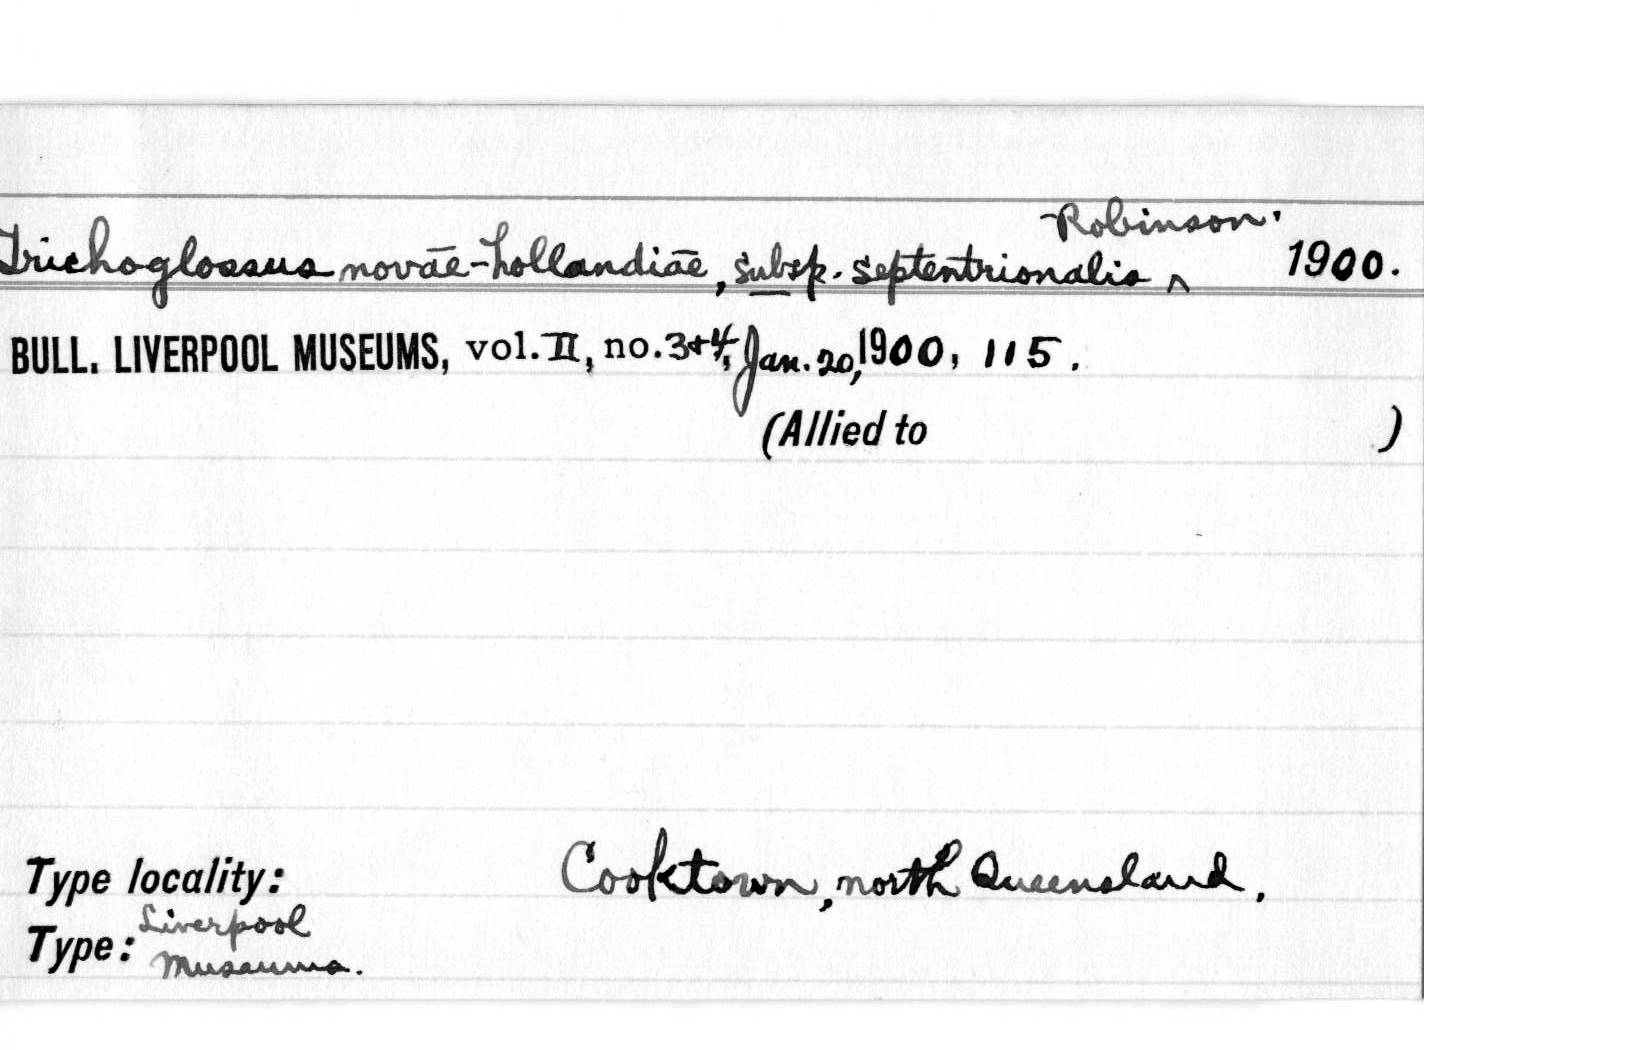 Trichoglossus novāe-hollandiāe, subsp. septentrionalis ^ Robinson. 1900.
BULL. LIVERPOOL MUSEUMS, vol. II, no. 3+4, Jan. 20, 1900, 115.
(Allied to )
Type locality: Cooktown, north Queensland.
Type: Liverpool
Museums.